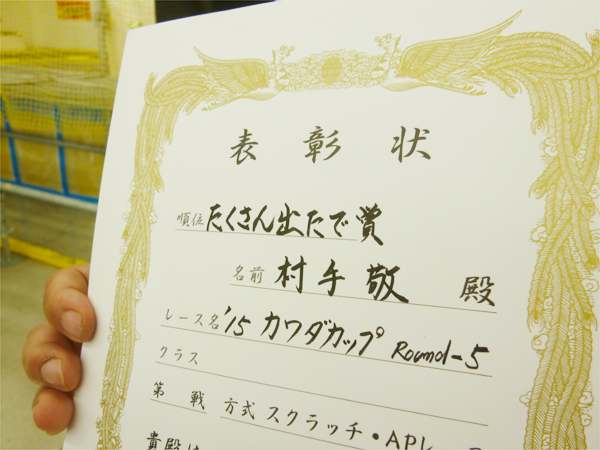 表彰状
順位 たくさん出たで賞
名前 村手 敬 殿
レース名 '15 カワダカップ Round-5
クラス
第 戦 方式 スクラッチ・APL
貴殿は